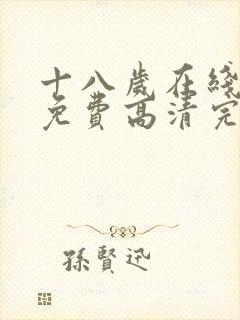 十八歲在綫
免費高清完
孫賢迅